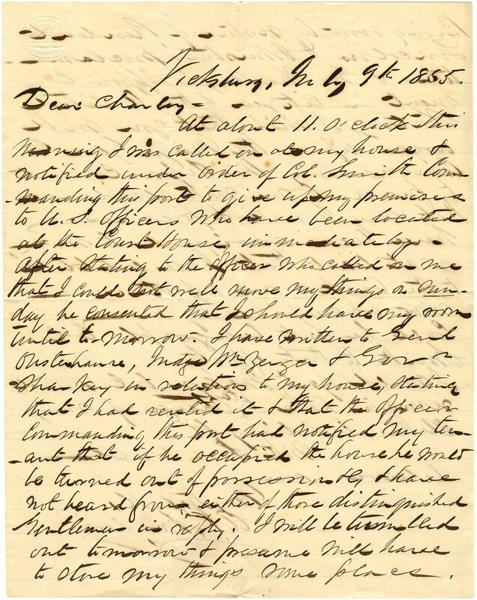 Vicksburg, July 9th 1865.
Dear Charley -
At about 11. O'clock this
morning I was called on at my house &
notified under order of Col. Smith Com
manding this post to give up my premises
to U.S. officers who have been located
at the Court House, immediately.
After stating to the officer who called on me
that I could not well move my things on Sun-
day he consented that I should have my room
until to-morrow. I have written to Genl
Judge & Govr
Sharkey in relation to my house, stating
that I had rented it & that the officer
commanding this post had notified my ten-
ant that if he occupied the house he would
be turned out of possession & have
not heard from either of those distinguished
gentlemen in reply. I will be
out to morrow & presume will have
to store my things some place.